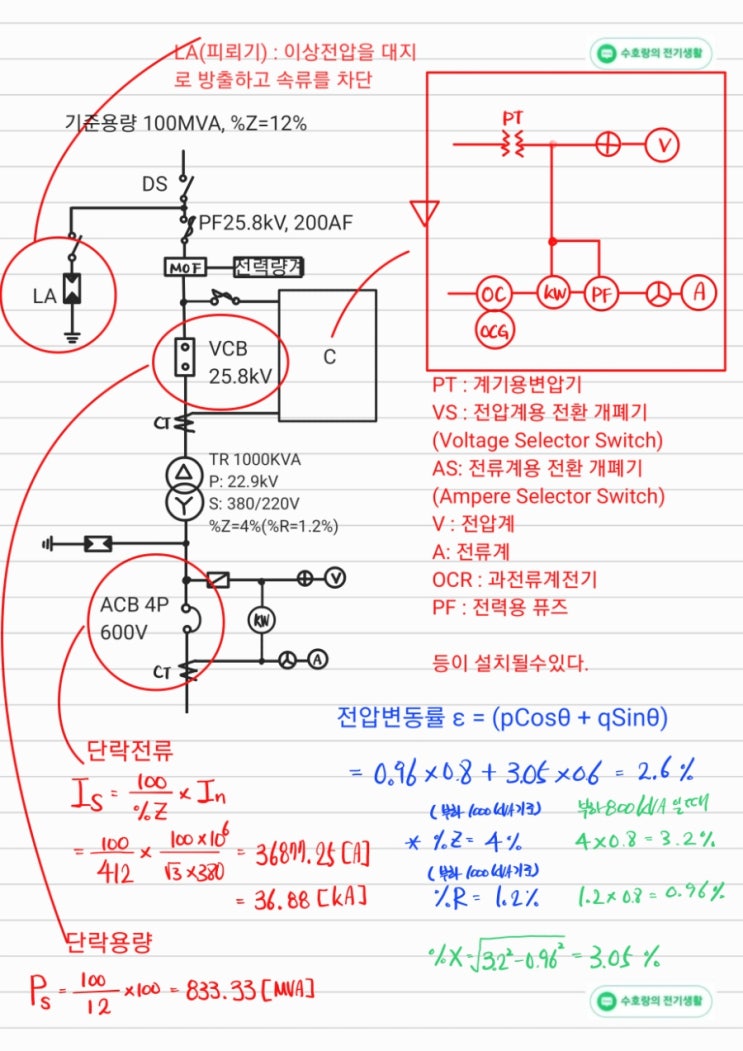 LA(피뢰기) : 이상전압을 대지
로 방출하고 속류를 차단
수호랑의 전기생활
기준용량 100MVA, %Z=12%
DS
PF25.8kV, 200AF
MOF
전력량계
LA
VCB
25.8kV
C
CT
TR 1000KVA
P: 22.9kV
S: 380/220V
%Z=4%(%R=1.2%)
ACB 4P
600V
V
KW
A
CT
PT
V
OC
KW
PF
A
OCG
PT : 계기용변압기
VS : 전압계용 전환 개폐기
(Voltage Selector Switch)
AS: 전류계용 전환 개폐기
(Ampere Selector Switch)
V : 전압계
A: 전류계
OCR : 과전류계전기
PF : 전력용 퓨즈
등이 설치될수있다.
전압변동률 ε = (pCosθ + qSinθ)
= 0.96×0.8 + 3.05×0.6 = 2.6%
(부하 1000kVA기준)
* %Z = 4%
(부하 1000kVA기준)
%R = 1.2%
부하 800kVA 일때
4×0.8 = 3.2%
1.2×0.8 = 0.96%
%X=√3.2²-0.96² = 3.05 %
단락전류
Is = 100/%Z × In
= 100/412 × 100×10⁶/√3×380 = 36877.25[A]
= 36.88[kA]
단락용량
Ps = 100/12 ×100 = 833.33[MVA]
수호랑의 전기생활